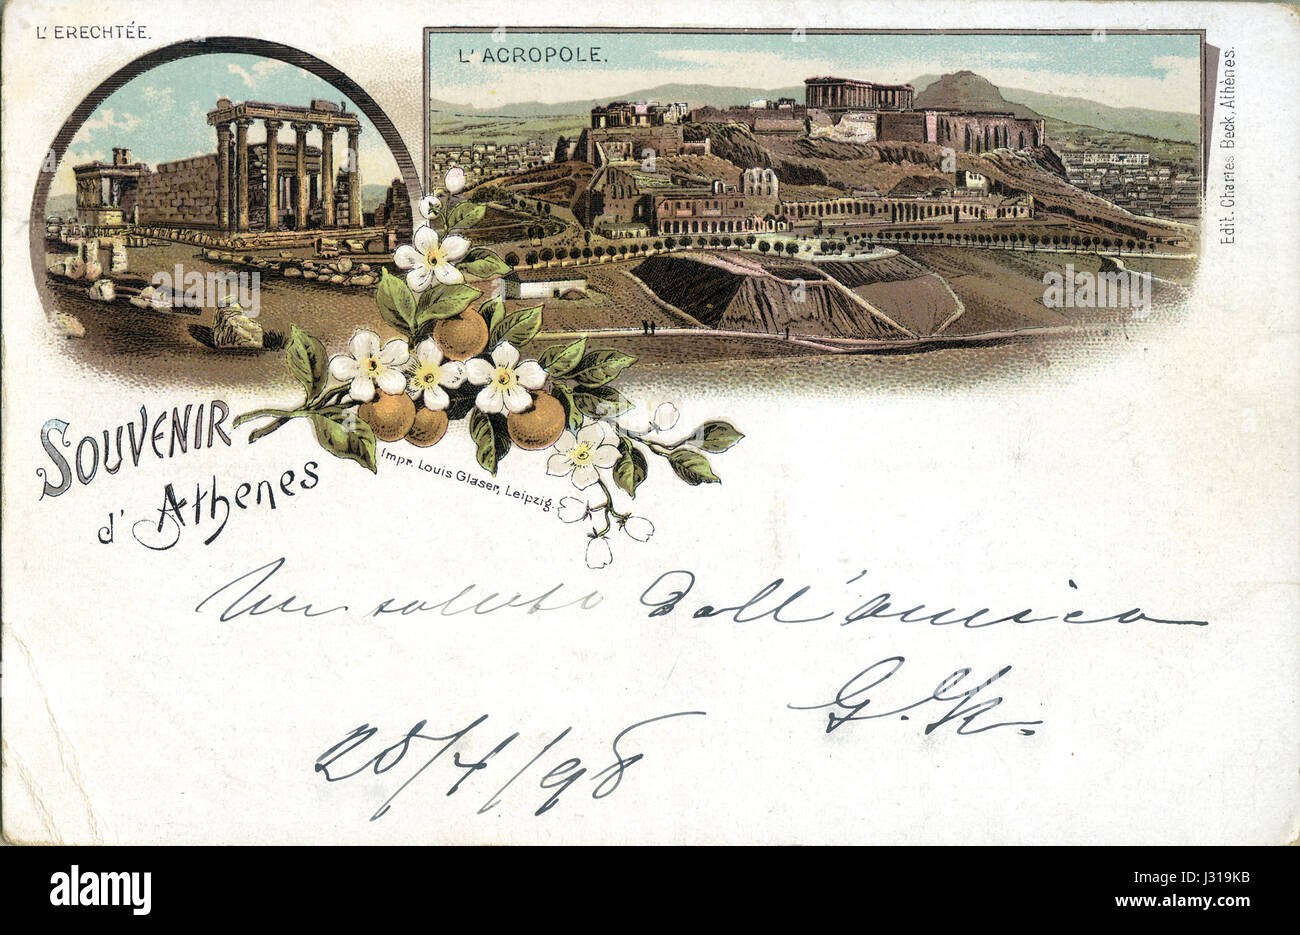 L'ERECHTÉE.
L'ACROPOLE.
Edit. Charles Beck, Athènes.
SOUVENIR
d'Athenes
Impr. Louis Glaser, Leipzig.
Un saluto dall'amico
G. K.
28/4/98
alamy
alamy
Image ID: J319KB
www.alamy.com